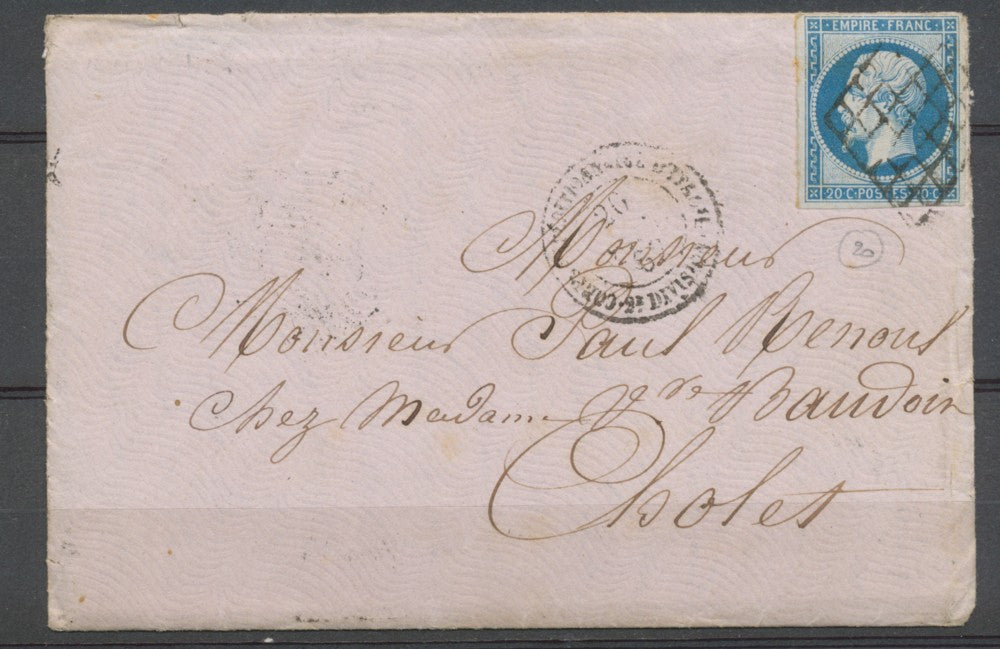 EMPIRE·FRANC·
20 C·POSTES·20 C·
20
Monsieur
Monsieur Paul Renoul
chez Madame Vve Baudoin
Cholet